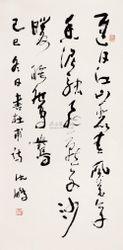 迟日江山丽春风花草
香泥融飞燕子沙
暖睡鸳鸯
己巳冬日书杜甫诗沈鹏